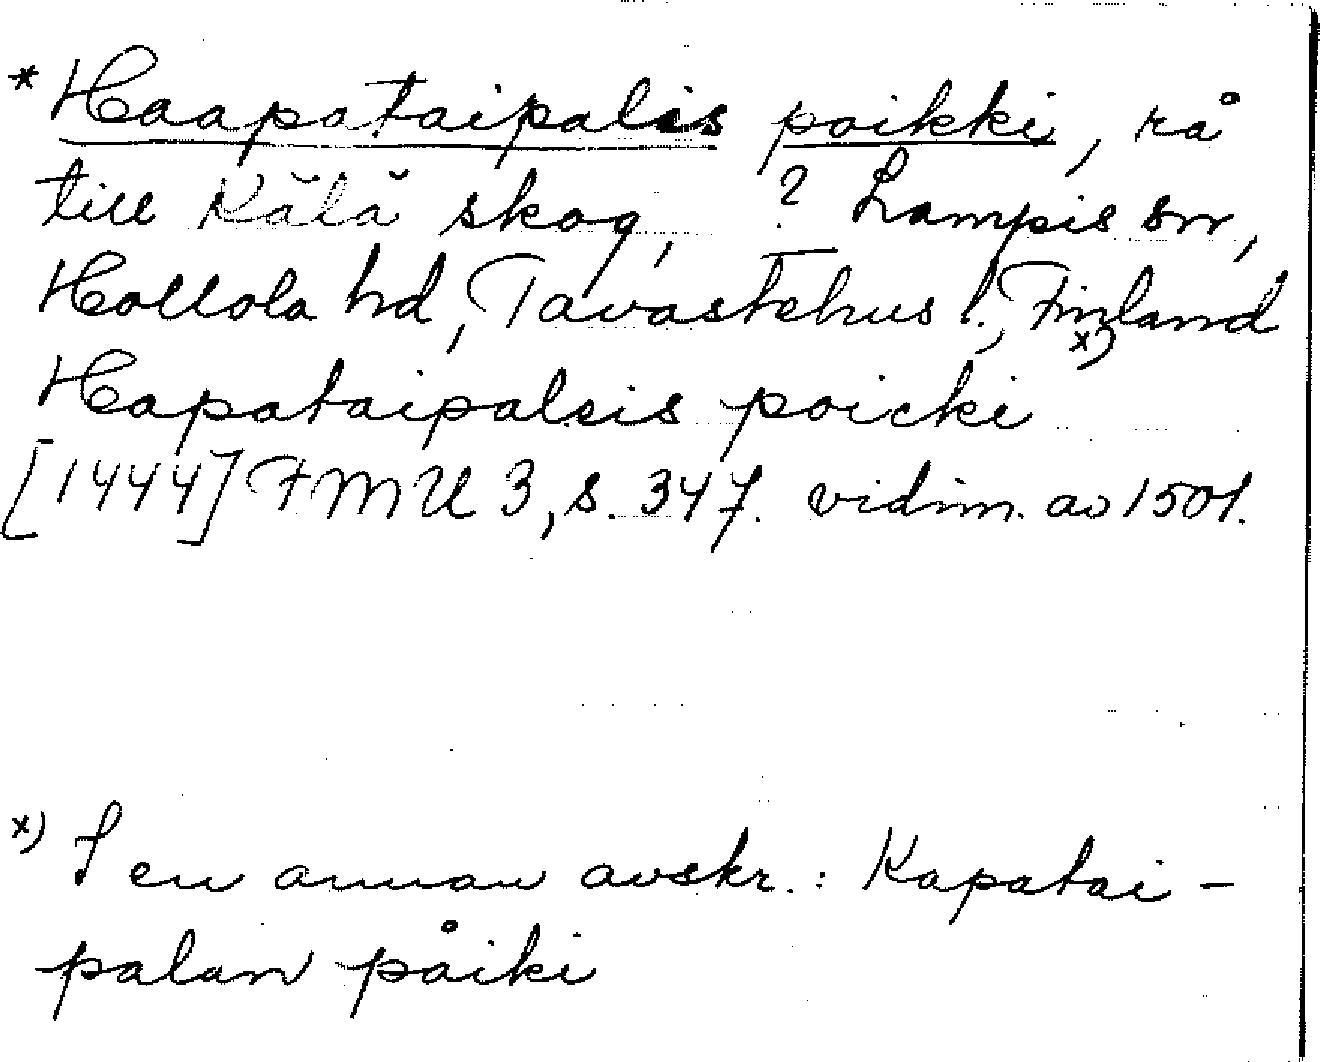 *Haapataipalis poikki, rå
till Kälä skog, ? Lampis sn,
Hollola hd, Tavastehus l., Finland
Hapataipalsis poicki x)
[1444] FMU 3, s. 347. vidim. av 1501.
x) I en annan avskr.: Kapatai-
palan påiki